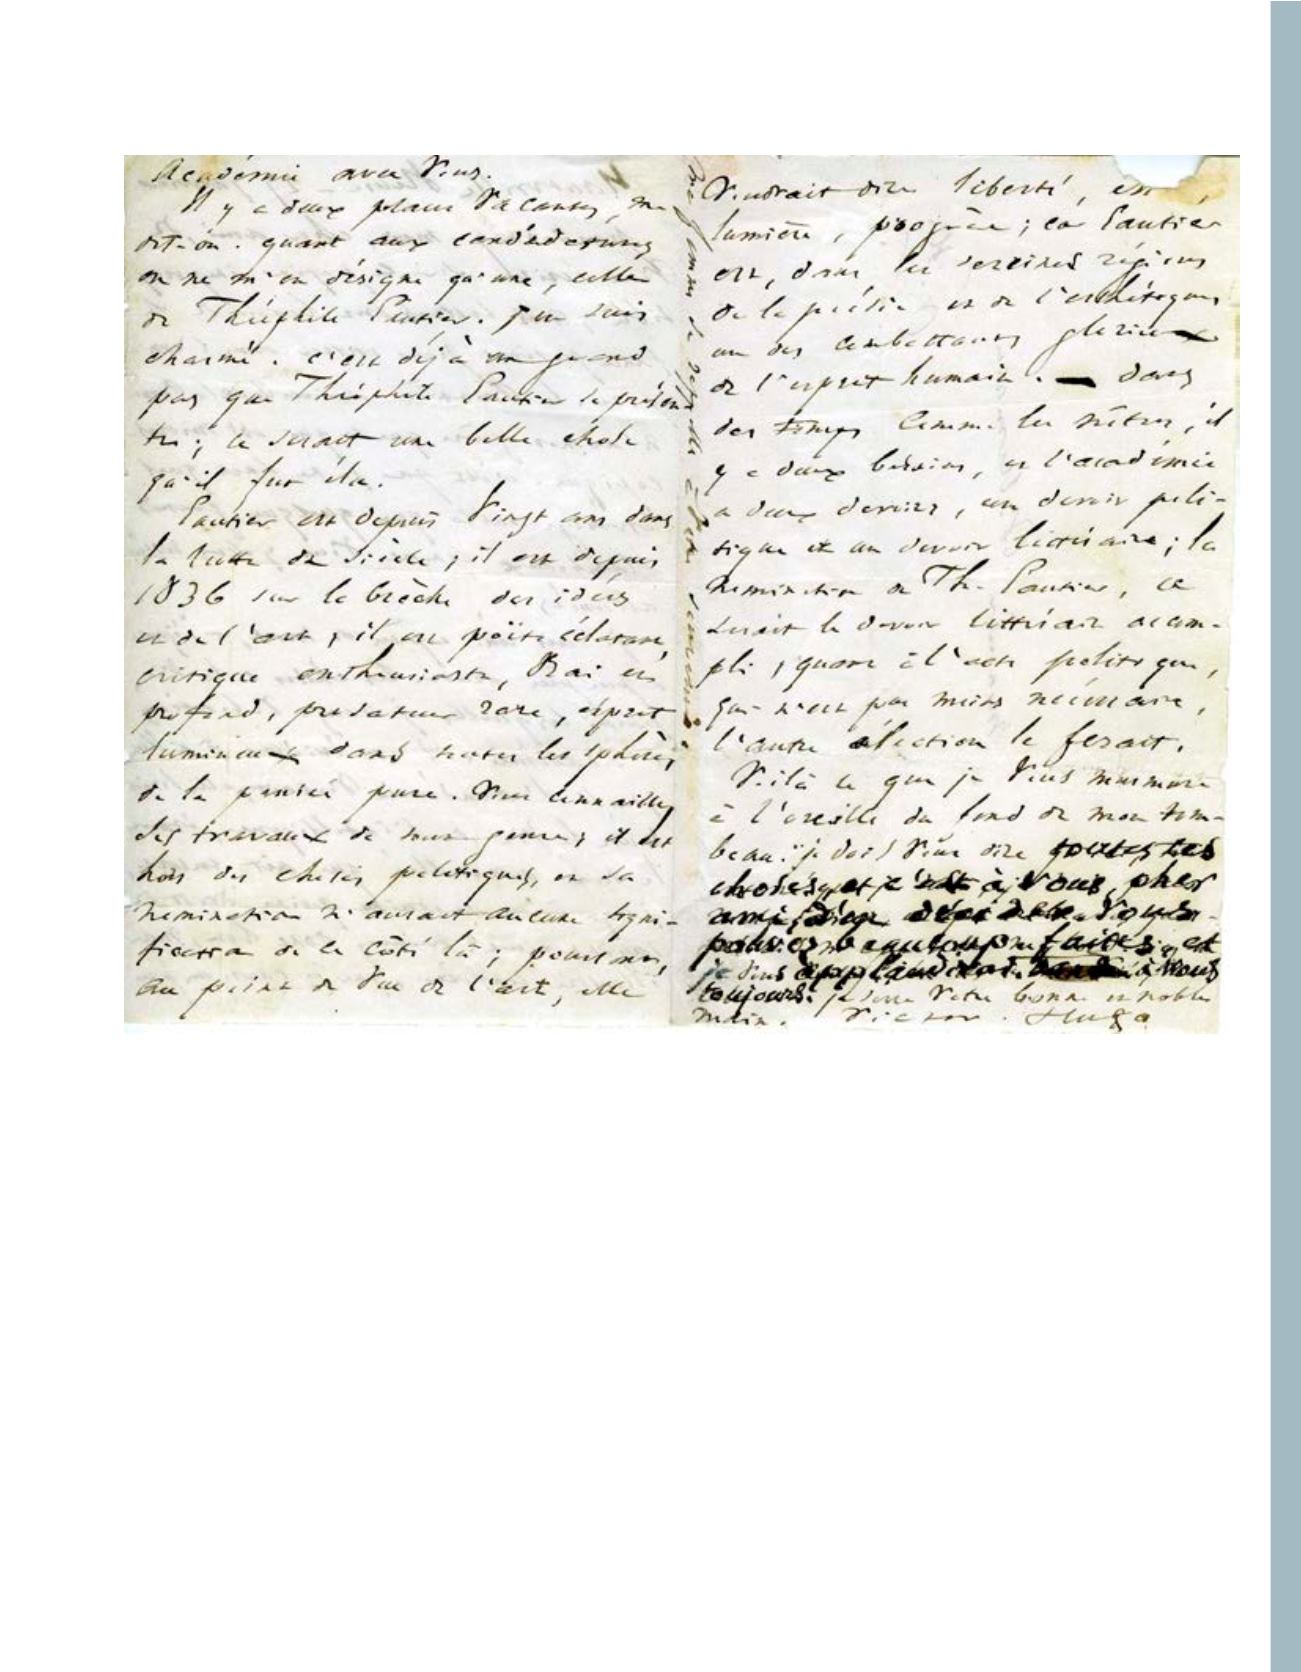 Académie avec Vous.
Il y a deux places Vacantes, me
dit-on. quant aux candidatures
on ne m'en désigne qu'une, celle
de Théophile Gautier. j'en suis
charmé. c'est déjà un grand
pas que Théophile Gautier se présen-
te ; ce serait une belle chose
qu'il fut élu.
Gautier est depuis Vingt ans dans
la lutte du siècle ; il est depuis
1836 sur la brèche des idées
et de l'art ; il est poëte éclatant,
critique enthousiaste, Vrai et
profond, prosateur rare, esprit
lumineux dans toutes les sphères
de la pensée pure. Vous connaissez
ses travaux de tous genres ; il est
hors des choses politiques, et sa
nomination n'aurait aucune signi-
fication de ce côté là ; pourtant,
au point de Vue de l'art, elle
Voudrait dire liberté,
lumière, progrès ; car Gautier
est, dans les sereines régions
de la poésie et de l'esthétique,
un des combattants glorieux
de l'esprit humain. — dans
des temps comme les nôtres, il
y a deux besoins, et l'académie
a deux devoirs, un devoir poli-
tique et un devoir littéraire ; la
nomination de Th. Gautier, ce
serait le devoir littéraire accom-
pli ; quant à l'acte politique,
qui n'est pas moins nécessaire,
l'autre élection le ferait.
Voilà ce que je Vous murmure
à l'oreille du fond de mon tom-
beau. je dois Vous dire toutes ces
choses, et c'est à Vous, cher
ami,
pouvez beaucoup faites, et
je Vous applaudirai. à Vous
toujours. je serre Votre bonne et noble
main. Victor Hugo